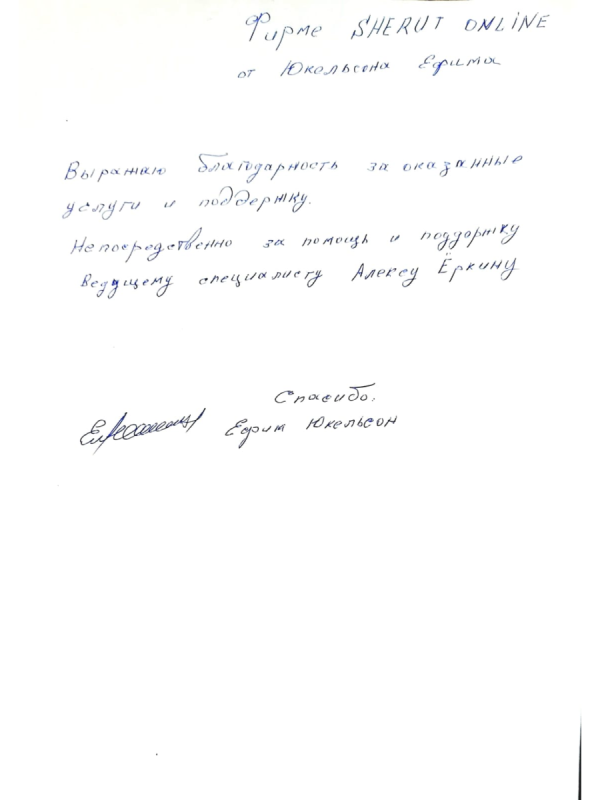 Фирме SHERUT ONLINE
от Юкельсона Ефима
Выражаю благодарность за оказанные
услуги и поддержку.
Непосредственно за помощь и поддержку
ведущему специалисту Алексу Ёркину
Спасибо.
Ефим Юкельсон